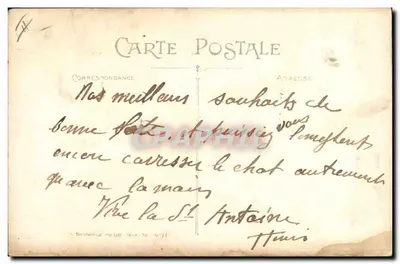 CARTE POSTALE
CORRESPONDANCE ADRESSE
Mes meilleurs souhaits de
bonne fête, et puissiez vous longtemps
encore caresser le chat autrement
qu'avec la main
Vive la St Antoine